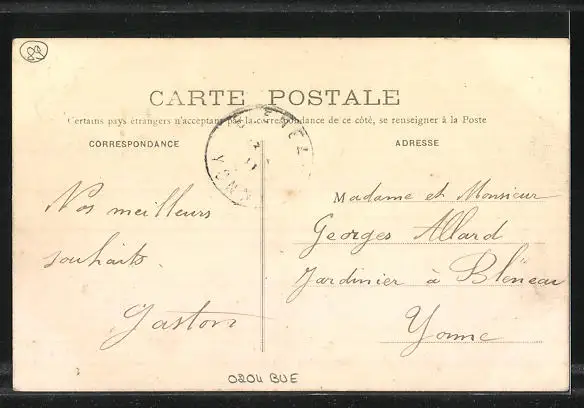 89
CARTE POSTALE
Certains pays étrangers n'acceptant pas la correspondance de ce côté, se renseigner à la Poste
CORRESPONDANCE
ADRESSE
Nos meilleurs
souhaits.
Gaston
Madame et Monsieur
Georges Allard
Jardinier à Bléneau
Yonne
0204 BUE